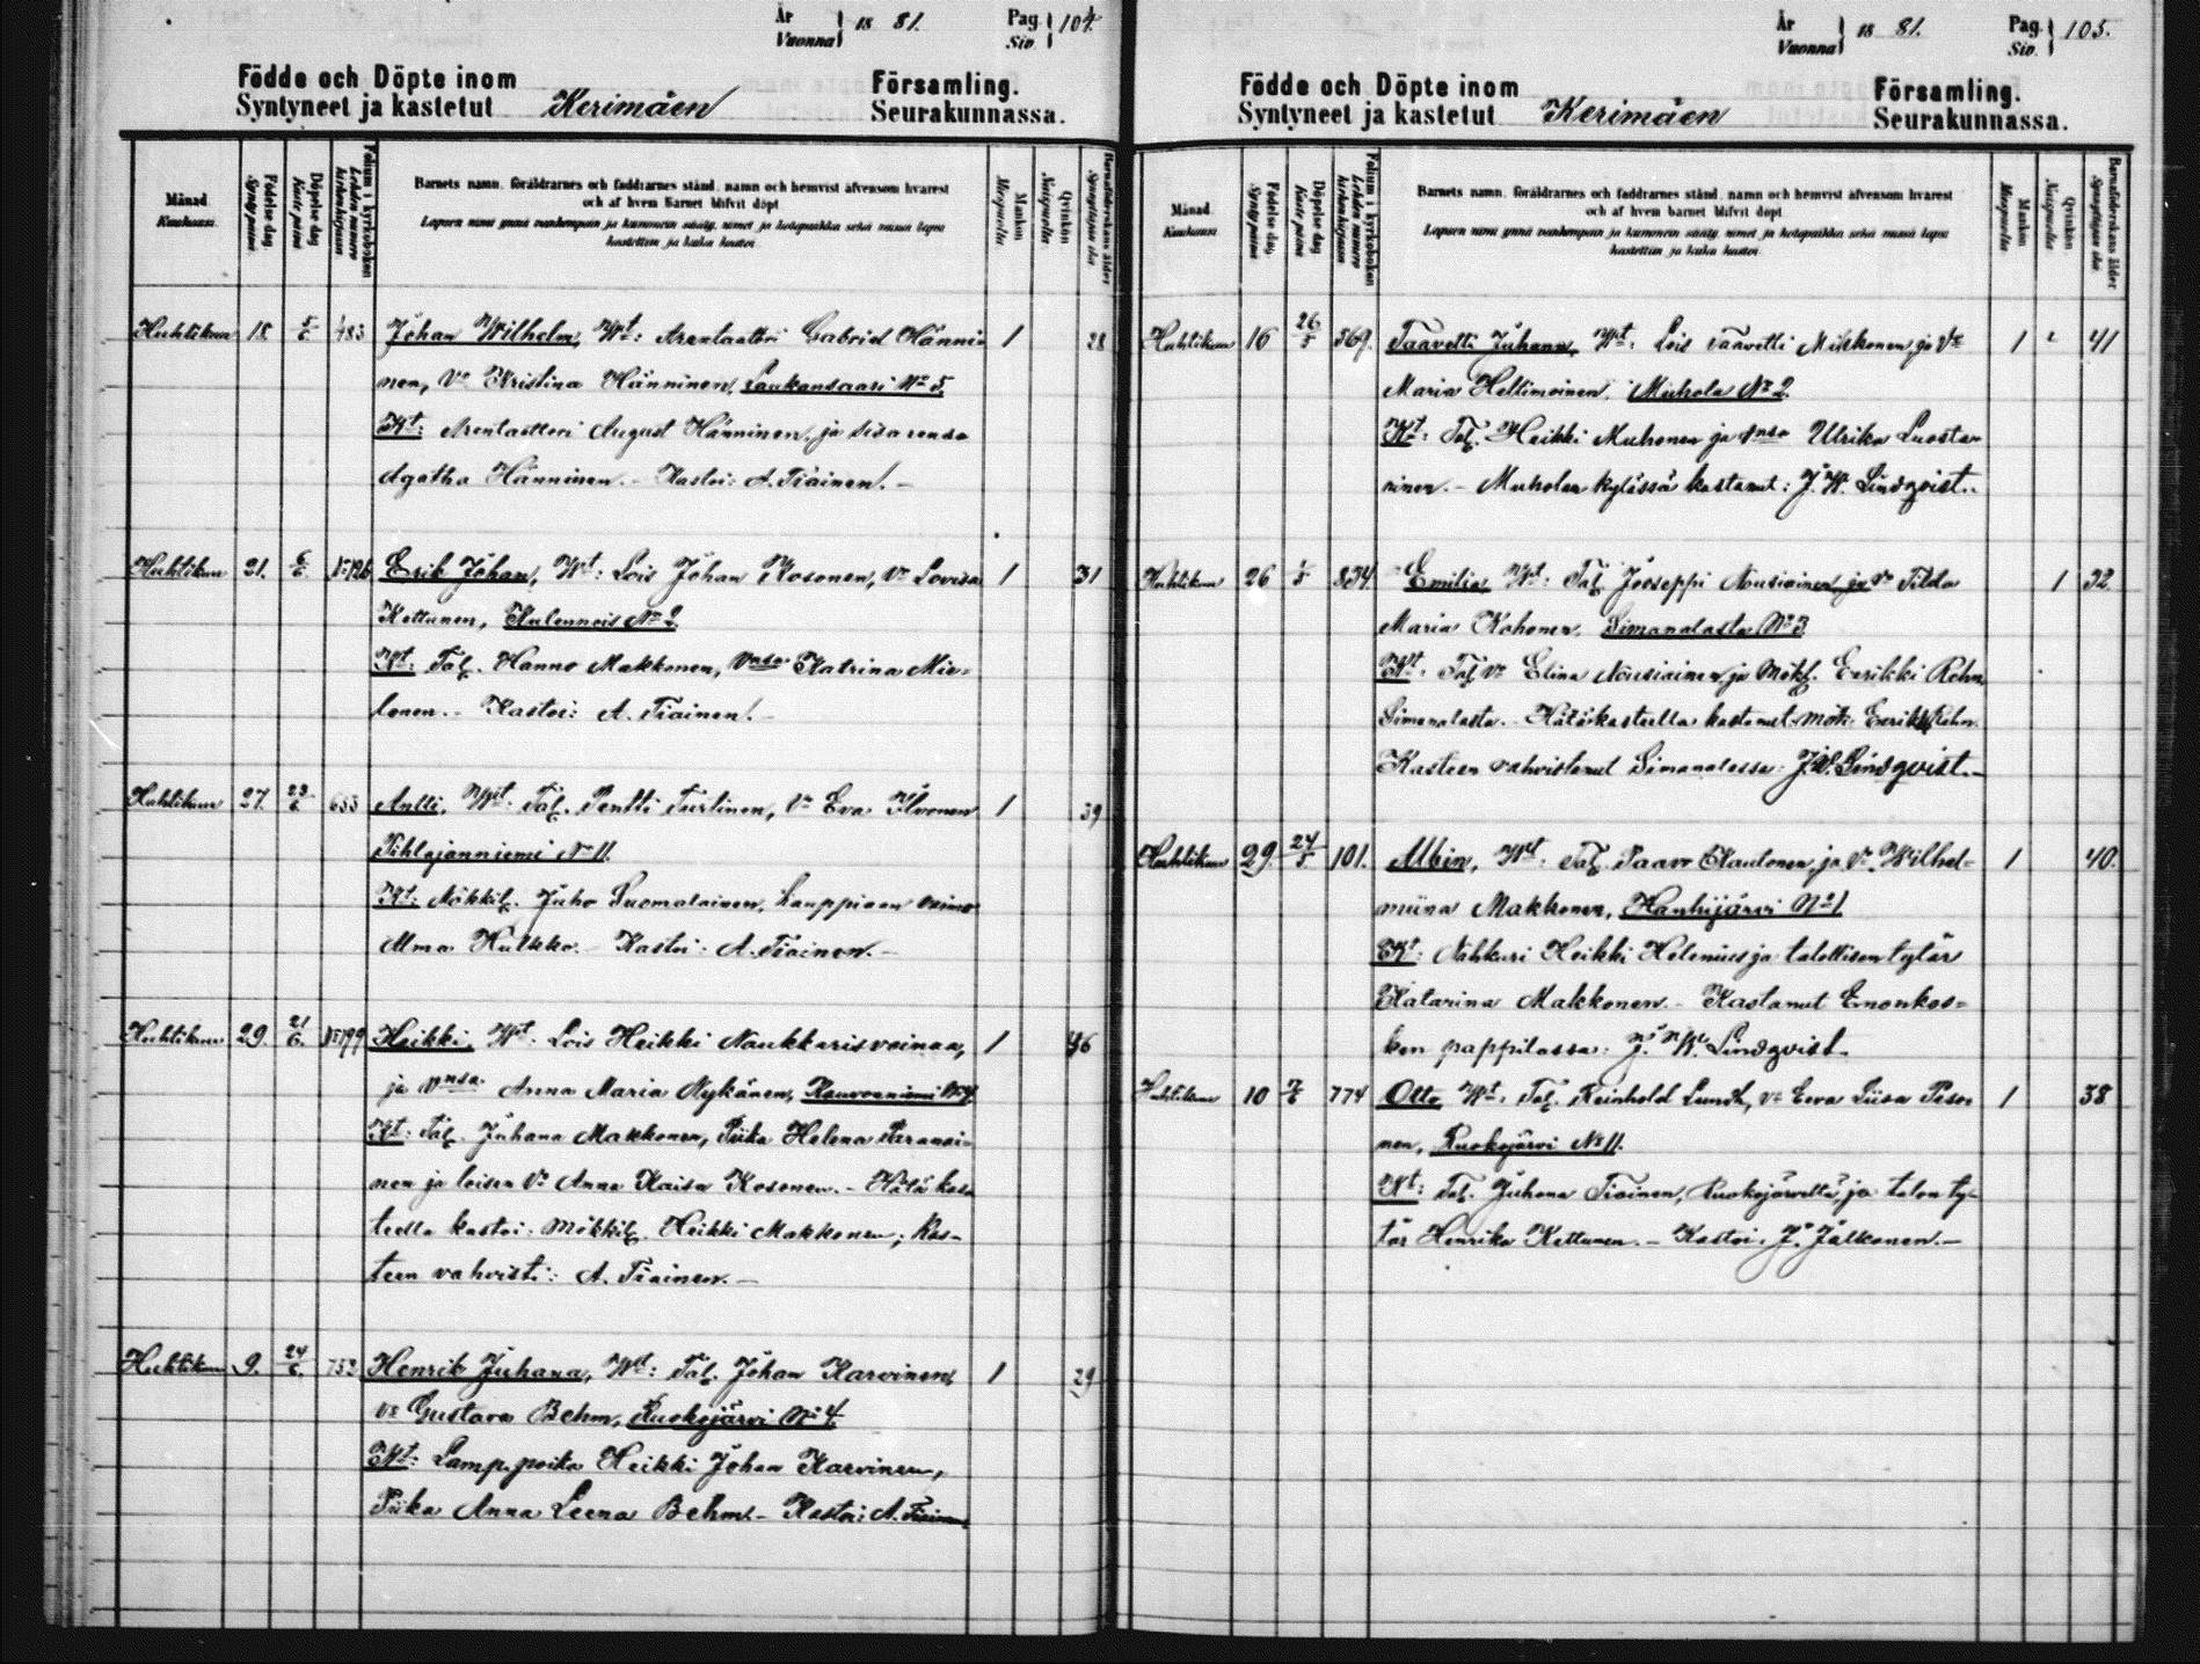 År
Vuonna } 18 81.
Pag.
Siv. } 104.
Födde och Döpte inom
Syntyneet ja kastetut Kerimäen
Församling.
Seurakunnassa.
Månad
Kuukausi
Födelse dag
Synty päivä
Döpelse dag
Kaste päivä
Folium i kyrkoboken
Lehden numero kirkonkirjassa
Barnets namn, föräldrarnes och faddrarnes stånd, namn och hemvist äfvensom hvarest
och af hvem barnet blifvit döpt
Lapsen nimi ynnä vanhempain ja kummein sääty, nimet ja kotopaikka sekä missä lapsi
kastettiin ja kuka kastoi
Mankön
Miespuolia
Qvinkön
Naispuolia
Barnaföderskans ålder
Synnyttäjän ikä
Huhtikuu 18. 5/6 483 Johan Wilhelm, Wt: Arentaattori Gabriel Hänni- 1 28
nen, Vo Kristina Hänninen, Laukansaari No 5
Kt: Arentaattori August Hänninen, ja sisarensa
Agatha Hänninen. - Kastoi: A. Tiainen. -
Huhtikuu 21. 6/6 Erik Johan, Wt: Lois Johan Kosonen, Vo Lovisa 1 31
Kettunen, Kulennois No 2
Kt: Tal. Hanno Makkonen, Vnsa Katrina Mie-
lonen. - Kastoi: A. Tiainen. -
Huhtikuu 27. 23/6 633 Antti, Wt: Tal. Pentti Turtinen, Vo Eva Ilvonen 1 39
Pihlajanniemi No 11.
Kt: Mökkil. Juho Suomalainen, kauppiaan vaimo
Alma Hulkko. - Kastoi: A. Tiainen. -
Huhtikuu 29. 21/6. Heikki, Wt: Lois Heikki Naukkarisvainaa, 1 46
ja Vnsa Anna Maria Nykänen,
Kt: Tal. Juhana Makkonen, Piika Helena Paranai-
nen ja loisen Vo Anna Kaisa Kosonen. - Hätä kas-
teella kastoi: Mökkil. Heikki Makkonen; Kas-
teen vahvisti: A. Tiainen. -
Huhtikuu 9. 24/6. 753 Henrik Juhana, Wt: Tal. Johan Karvinen, 1 29
vo Gustava Behm, Ruokojärvi No 4.
Kt: Lamp. poika Heikki Johan Karvinen,
Piika Anna Leena Behm. - Kastoi: A. Tiainen
År
Vuonna } 18 81.
Pag.
Siv. } 105.
Födde och Döpte inom
Syntyneet ja kastetut Kerimäen
Församling.
Seurakunnassa.
Månad
Kuukausi
Födelse dag
Synty päivä
Döpelse dag
Kaste päivä
Folium i kyrkoboken
Lehden numero kirkonkirjassa
Barnets namn, föräldrarnes och faddrarnes stånd, namn och hemvist äfvensom hvarest
och af hvem barnet blifvit döpt
Lapsen nimi ynnä vanhempain ja kummein sääty, nimet ja kotopaikka sekä missä lapsi
kastettiin ja kuka kastoi
Mankön
Miespuolia
Qvinkön
Naispuolia
Barnaföderskans ålder
Synnyttäjän ikä
Huhtikuu 16 26/5 569. Taavetti Juhana, Wt: Lois Taavetti Mikkonen ja Vo 1 41
Maria Heltimoinen, Muhola No 2
Kt: Tal. Heikki Muhonen ja Vnsa Ulrika Luosta-
rinen. - Muholan kylässä kastanut: J. W. Lindqvist.
Huhtikuu 26 1/5 834 Emilia, Wt: Tal. Jooseppi Nousiainen ja Vo Tilda 1 32
Maria Kohonen, Simanalasta No 3
Kt: Tal. Vo Elina Nousiainen ja Mökl. Eerikki Rehn
Simanalasta. - Hätäkasteella kastanut Mök: Eerikki Rehn.
Kasteen vahvistanut Simanalassa: J. W. Lindqvist. -
Huhtikuu 29. 24/5 101. Albin, Wt: Tal. Paavo Kautonen, ja Vo Wilhel- 1 40.
miina Makkonen, Hanhijärvi No 1
Kt: Nahkuri Heikki Helenius ja talollisen tytär
Katarina Makkonen. - Kastanut Enonkos-
ken pappilassa: J. W. Lindqvist.
Huhtikuu 10 7/6 774 Otto, Wt: Tal. Reinhold Lundh, Vo Eeva Liisa Peso- 1 38
nen, Ruokojärvi No 11.
Kt: Tal. Juhana Tiainen, Ruokojärveltä, ja talon ty-
tär Henrika Kettunen. - Kastoi: J. Jalkanen. -